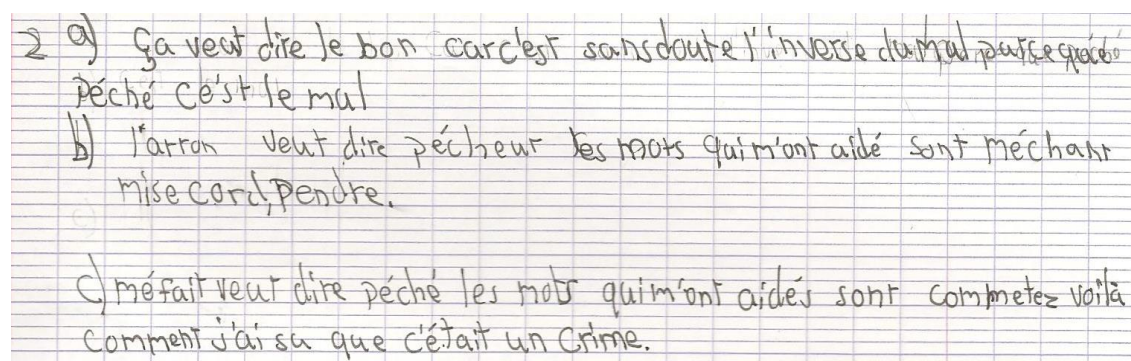 2 a) Ça veut dire le bon car c'est sans doute l'inverse du mal parce que
péché cé'st le mal
b) l'arron veut dire pécheur les mots qui m'ont aidé sont méchant
mise cord, pendre.
c) méfait veut dire péché les mots qui m'ont aidés sont commetez voilà
comment j'ai su que c'était un crime.